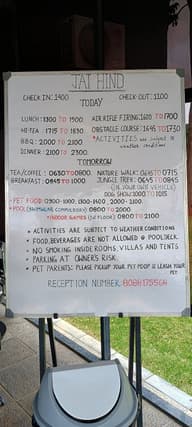 JAI HIND
CHECK IN: 1400 CHECK OUT: 1100
TODAY
LUNCH: 1300 TO 1500 AIR RIFLE FIRING: 1600 TO 1700
HI-TEA: 1715 TO 1830 OBSTACLE COURSE: 1645 TO 1730
BBQ: 2000 TO 2100 *ACTIVITIES are subject to weather conditions
DINNER: 2100 TO 2300
TOMORROW
TEA/COFFEE: 0630 TO 0800 NATURE WALK: 0645 TO 0715
BREAKFAST: 0845 TO 1000 JUNGLE TREK: 0645 TO 0845
(IN YOUR OWN VEHICLE)
DOG SHOW: 1000 TO 1015
PET FOOD: 0900-1000, 1300-1400, 2000-2100
POOL (SWIMWEAR COMPULSORY) 0800 TO 2000
INDOOR GAMES 0800 TO 2100
ACTIVITIES ARE SUBJECT TO WEATHER CONDITIONS
FOOD, BEVERAGES ARE NOT ALLOWED @ POOL DECK.
NO SMOKING INSIDE ROOMS, VILLAS AND TENTS
PARKING AT OWNER'S RISK.
PET PARENTS: PLEASE PICKUP YOUR PET POOP & LEASH YOUR PET
RECEPTION NUMBER: